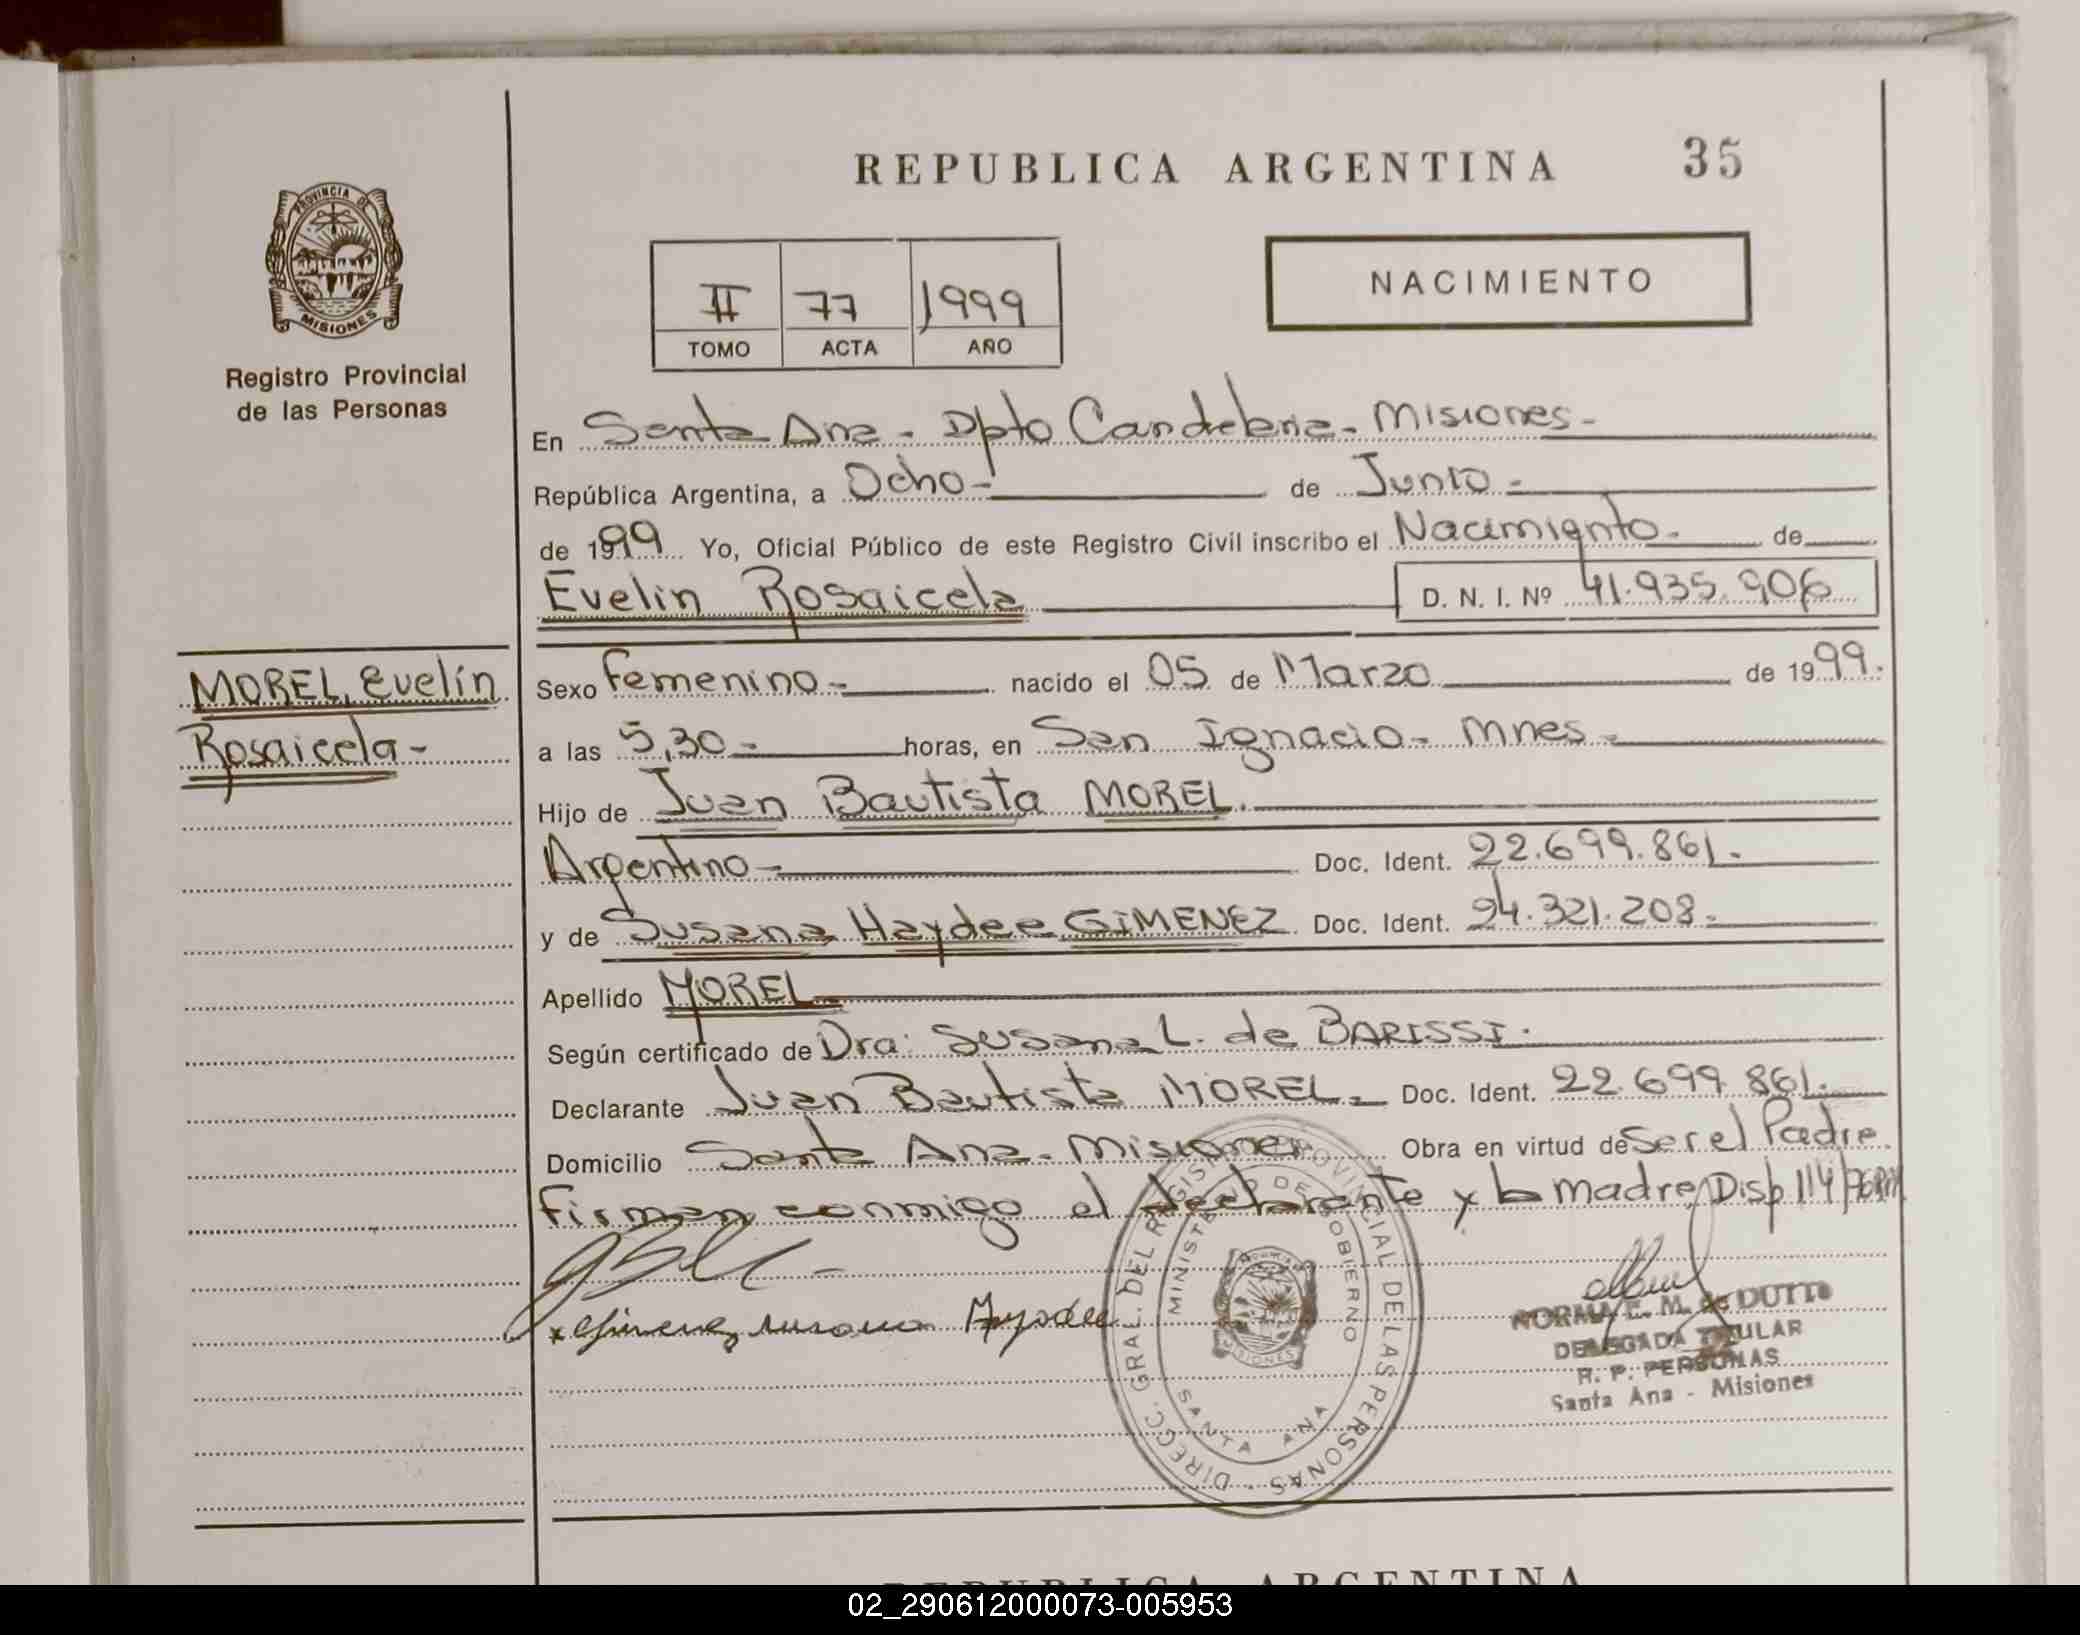 REPUBLICA ARGENTINA 35
PROVINCIA DE
MISIONES
Registro Provincial
de las Personas
NACIMIENTO
II 77 1999
TOMO ACTA AÑO
En Santa Ana - Dpto Candelaria - Misiones -
República Argentina, a Ocho - de Junio -
de 1999 Yo, Oficial Público de este Registro Civil inscribo el Nacimiento - de
Evelin Rosaicela D. N. I. Nº 41.935.906
MOREL, Evelín
Rosaicela -
Sexo Femenino - nacido el 05 de Marzo de 1999.
a las 5,30 - horas, en San Ignacio - Mnes -
Hijo de Juan Bautista MOREL.
Argentino - Doc. Ident. 22.699.861.
y de Susana Haydee GIMENEZ Doc. Ident. 24.321.208.
Apellido MOREL
Según certificado de Dra: Susana L. de BARISSI.
Declarante Juan Bautista MOREL - Doc. Ident. 22.699.861.
Domicilio Santa Ana - Misiones Obra en virtud de ser el Padre
Firman conmigo el declarante y la madre, Disp 114/
x Gimenez susana Haydee
DIRECC. GRAL. DEL REGISTRO PROVINCIAL DE LAS PERSONAS
MINISTERIO DE GOBIERNO
MISIONES
SANTA ANA
NORMA E. M. de DUTTO
DELEGADA TITULAR
R. P. PERSONAS
Santa Ana - Misiones
REPUBLICA ARGENTINA
02_290612000073-005953